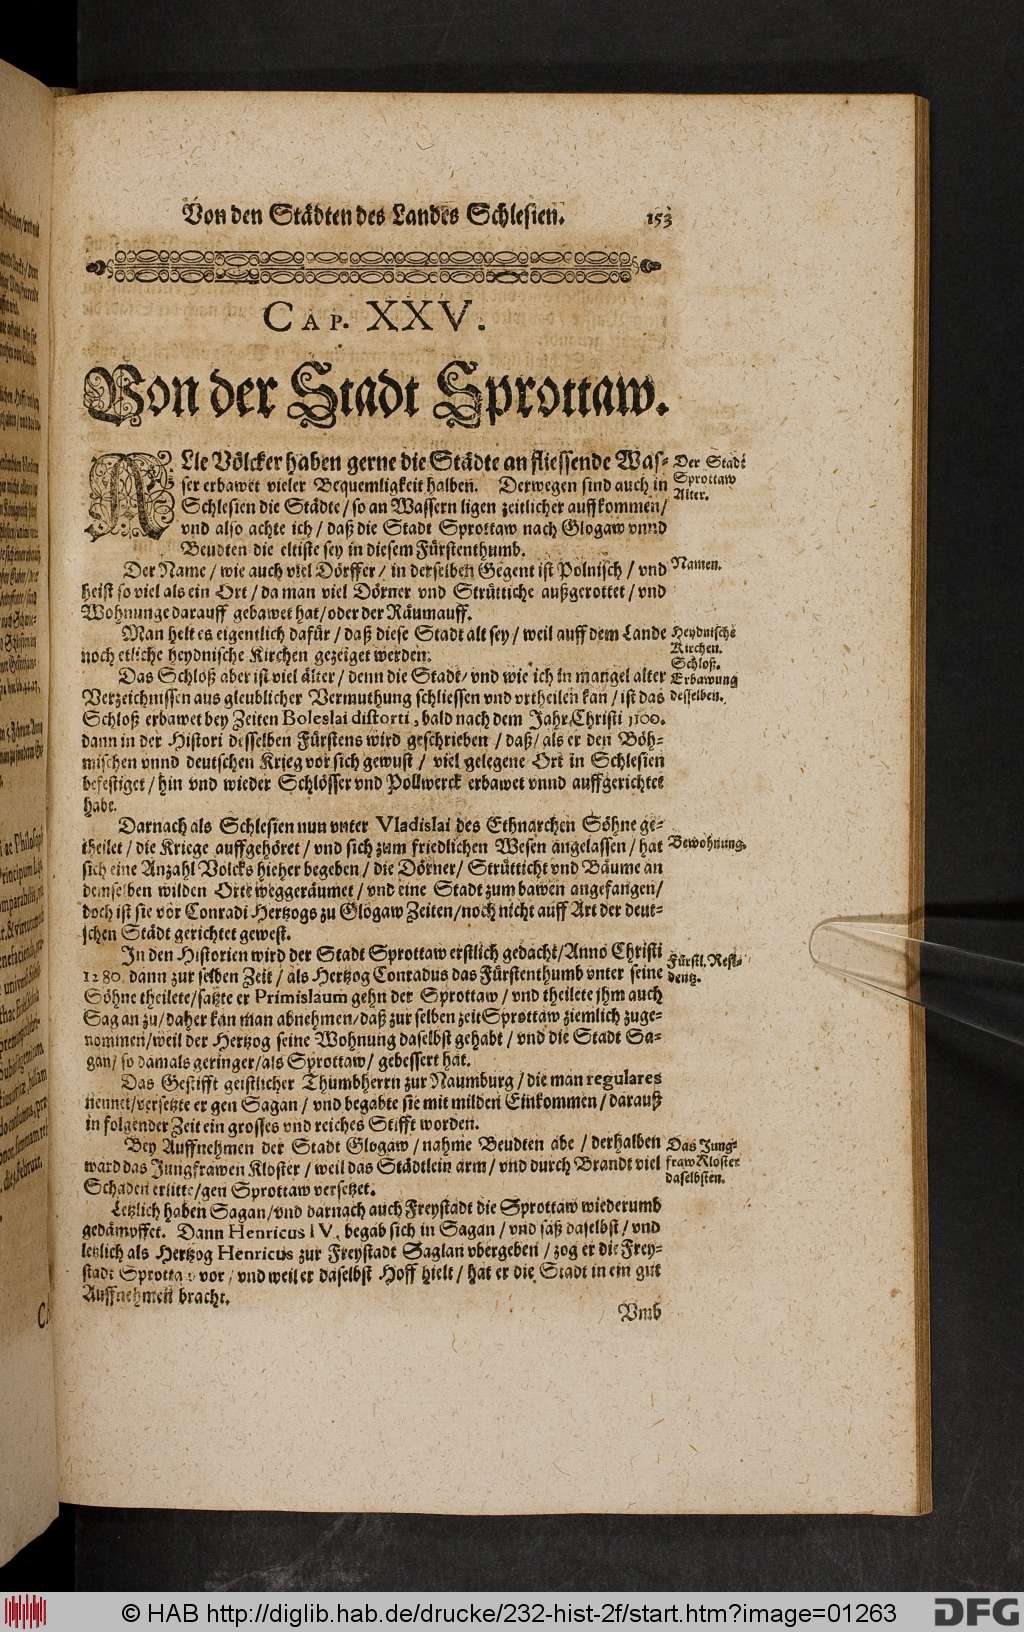 Von den Städten des Landes Schlesien. 153
CAP. XXV.
Von der Stadt Sprottaw.
ALle Völcker haben gerne die Städte an fliessende Was-
ser erbawet vieler Bequemligkeit halben. Derwegen sind auch in
Schlesien die Städte / so an Wassern ligen zeitlicher auffkommen /
vnd also achte ich / daß die Stadt Sprottaw nach Glogaw vnnd
Beudten die eltiste sey in diesem Fürstenthumb.
Der Stadt
Sprottaw
Alter.
Der Name / wie auch viel Dörffer / in derselben Gegent ist Polnisch / vnd
heist so viel als ein Ort / da man viel Dörner vnd Strüttiche außgerottet / vnd
Wohnunge darauff gebawet hat / oder der Räumauff.
Namen.
Man helt es eigentlich dafür / daß diese Stadt alt sey / weil auff dem Lande
noch etliche heydnische Kirchen gezeiget werden.
Heydnische
Kirchen.
Das Schloß aber ist viel älter / denn die Stadt / vnd wie ich in mangel alter
Verzeichnissen aus gleublicher Vermuthung schliessen vnd vrtheilen kan / ist das
Schloß erbawet bey Zeiten Boleslai distorti, bald nach dem Jahr Christi 1100.
dann in der Histori desselben Fürstens wird geschrieben / daß / als er den Böh-
mischen vnnd deutschen Krieg vor sich gewust / viel gelegene Ort in Schlesien
befestiget / hin vnd wieder Schlösser vnd Pollwerck erbawet vnnd auffgerichtet
habe.
Schloß.
Erbawung
desselben.
Darnach als Schlesien nun vnter Vladislai des Ethnarchen Söhne ge-
theilet / die Kriege auffgehöret / vnd sich zum friedlichen Wesen angelassen / hat
sich eine Anzahl Volcks hieher begeben / die Dörner / Strütticht vnd Bäume an
demselben wilden Orte weggeräumet / vnd eine Stadt zum bawen angefangen /
doch ist sie vor Conradi Hertzogs zu Glogaw Zeiten / noch nicht auff Art der deut-
schen Städt gerichtet gewest.
Bewohnung.
In den Historien wird der Stadt Sprottaw erstlich gedacht / Anno Christi
1280. dann zur selben Zeit / als Hertzog Conradus das Fürstenthumb vnter seine
Söhne theilete / satzte er Primislaum gehn der Sprottaw / vnd theilete jhm auch
Sagan zu / daher kan man abnehmen / daß zur selben zeit Sprottaw ziemlich zuge-
nommen / weil der Hertzog seine Wohnung daselbst gehabt / vnd die Stadt Sa-
gan / so damals geringer / als Sprottaw / gebessert hat.
Fürstl. Resi-
dentz.
Das Gestifft geistlicher Thumbherrn zur Naumburg / die man regulares
nennet / versetzte er gen Sagan / vnd begabte sie mit milden Einkommen / darauß
in folgender Zeit ein grosses vnd reiches Stifft worden.
Bey Auffnehmen der Stadt Glogaw / nahme Beudten abe / derhalben
ward das Jungfrawen Kloster / weil das Städtlein arm / vnd durch Brandt viel
Schaden erlitte / gen Sprottaw versetzet.
Das Jung-
fraw Kloster
daselbsten.
Letzlich haben Sagan / vnd darnach auch Freystadt die Sprottaw wiederumb
gedämpffet. Dann Henricus IV. begab sich in Sagan / vnd saß daselbst / vnd
letzlich als Hertzog Henricus zur Freystadt Saglan vbergeben / zog er die Frey-
stadt Sprottaw vor / vnd weil er daselbst Hoff hielt / hat er die Stadt in ein gut
Auffnehmen bracht.
Vmb
© HAB http://diglib.hab.de/drucke/232-hist-2f/start.htm?image=01263
DFG